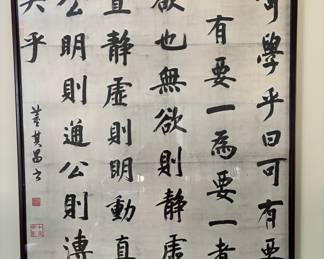 可學乎曰可有要
有要一為要一者
欲也無欲則靜虛
直靜虛則明動直
公明則通公則溥
矣乎
董其昌書